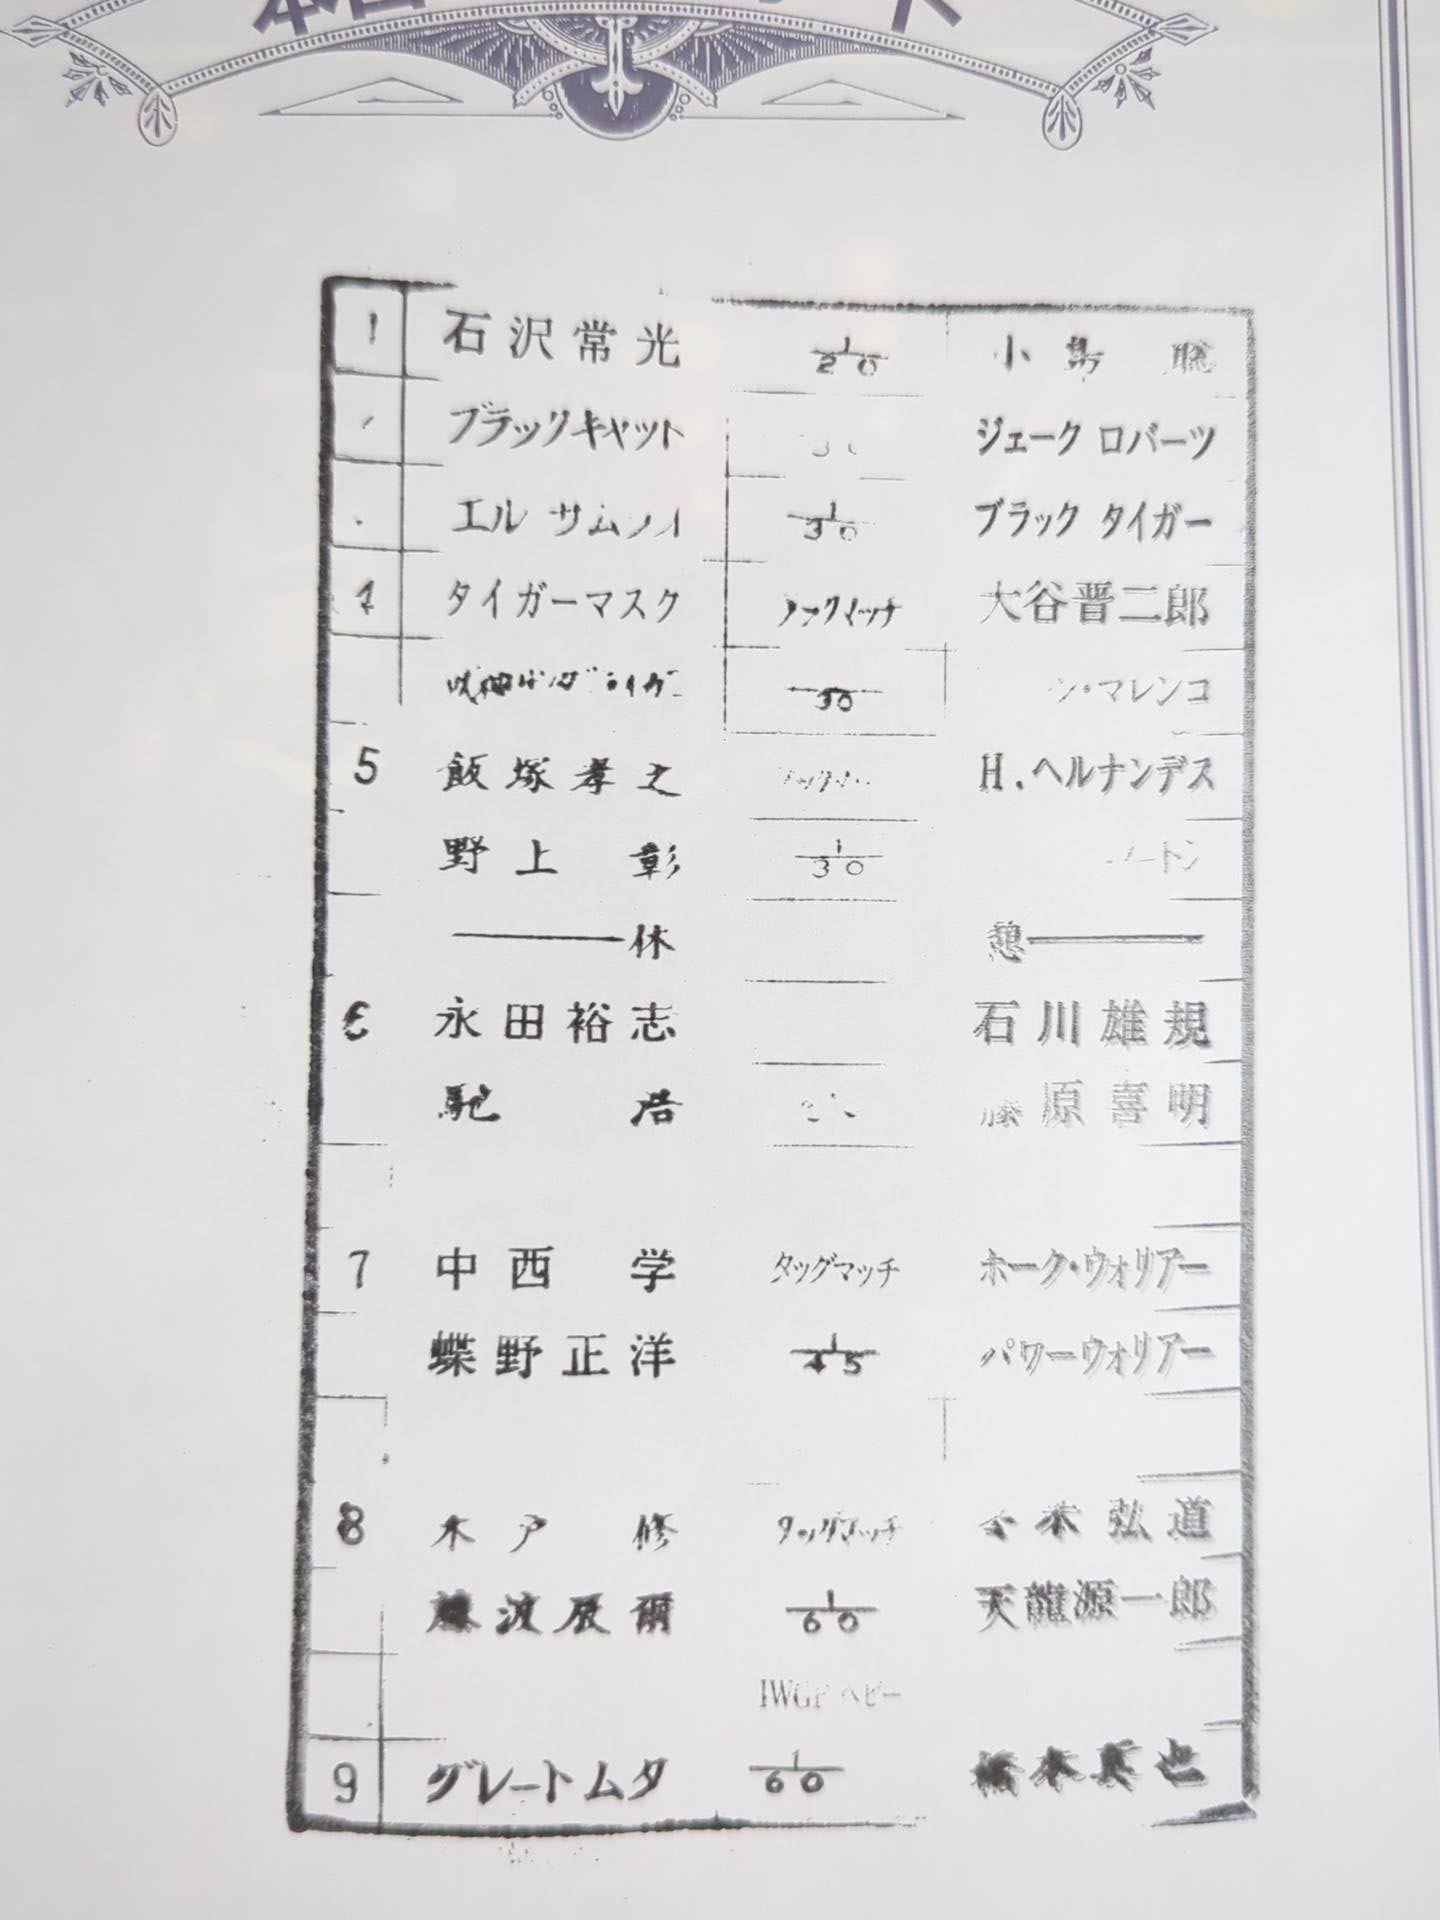 1 石沢常光 1/20 小島 聡
ブラックキャット ジェーク ロバーツ
エル サムライ 1/30 ブラック タイガー
4 タイガーマスク タッグマッチ 大谷晋二郎
30 ン・マレンコ
5 飯塚孝之 H.ヘルナンデス
野上 彰 1/30 ノートン
休 憩
6 永田裕志 石川雄規
馳 浩 藤原喜明
7 中西 学 タッグマッチ ホーク・ウォリアー
蝶野正洋 1/45 パワーウォリアー
8 木戸 修 タッグマッチ 冬木弘道
藤波辰爾 1/60 天龍源一郎
IWGP ヘビー
9 グレートムタ 1/60 橋本真也